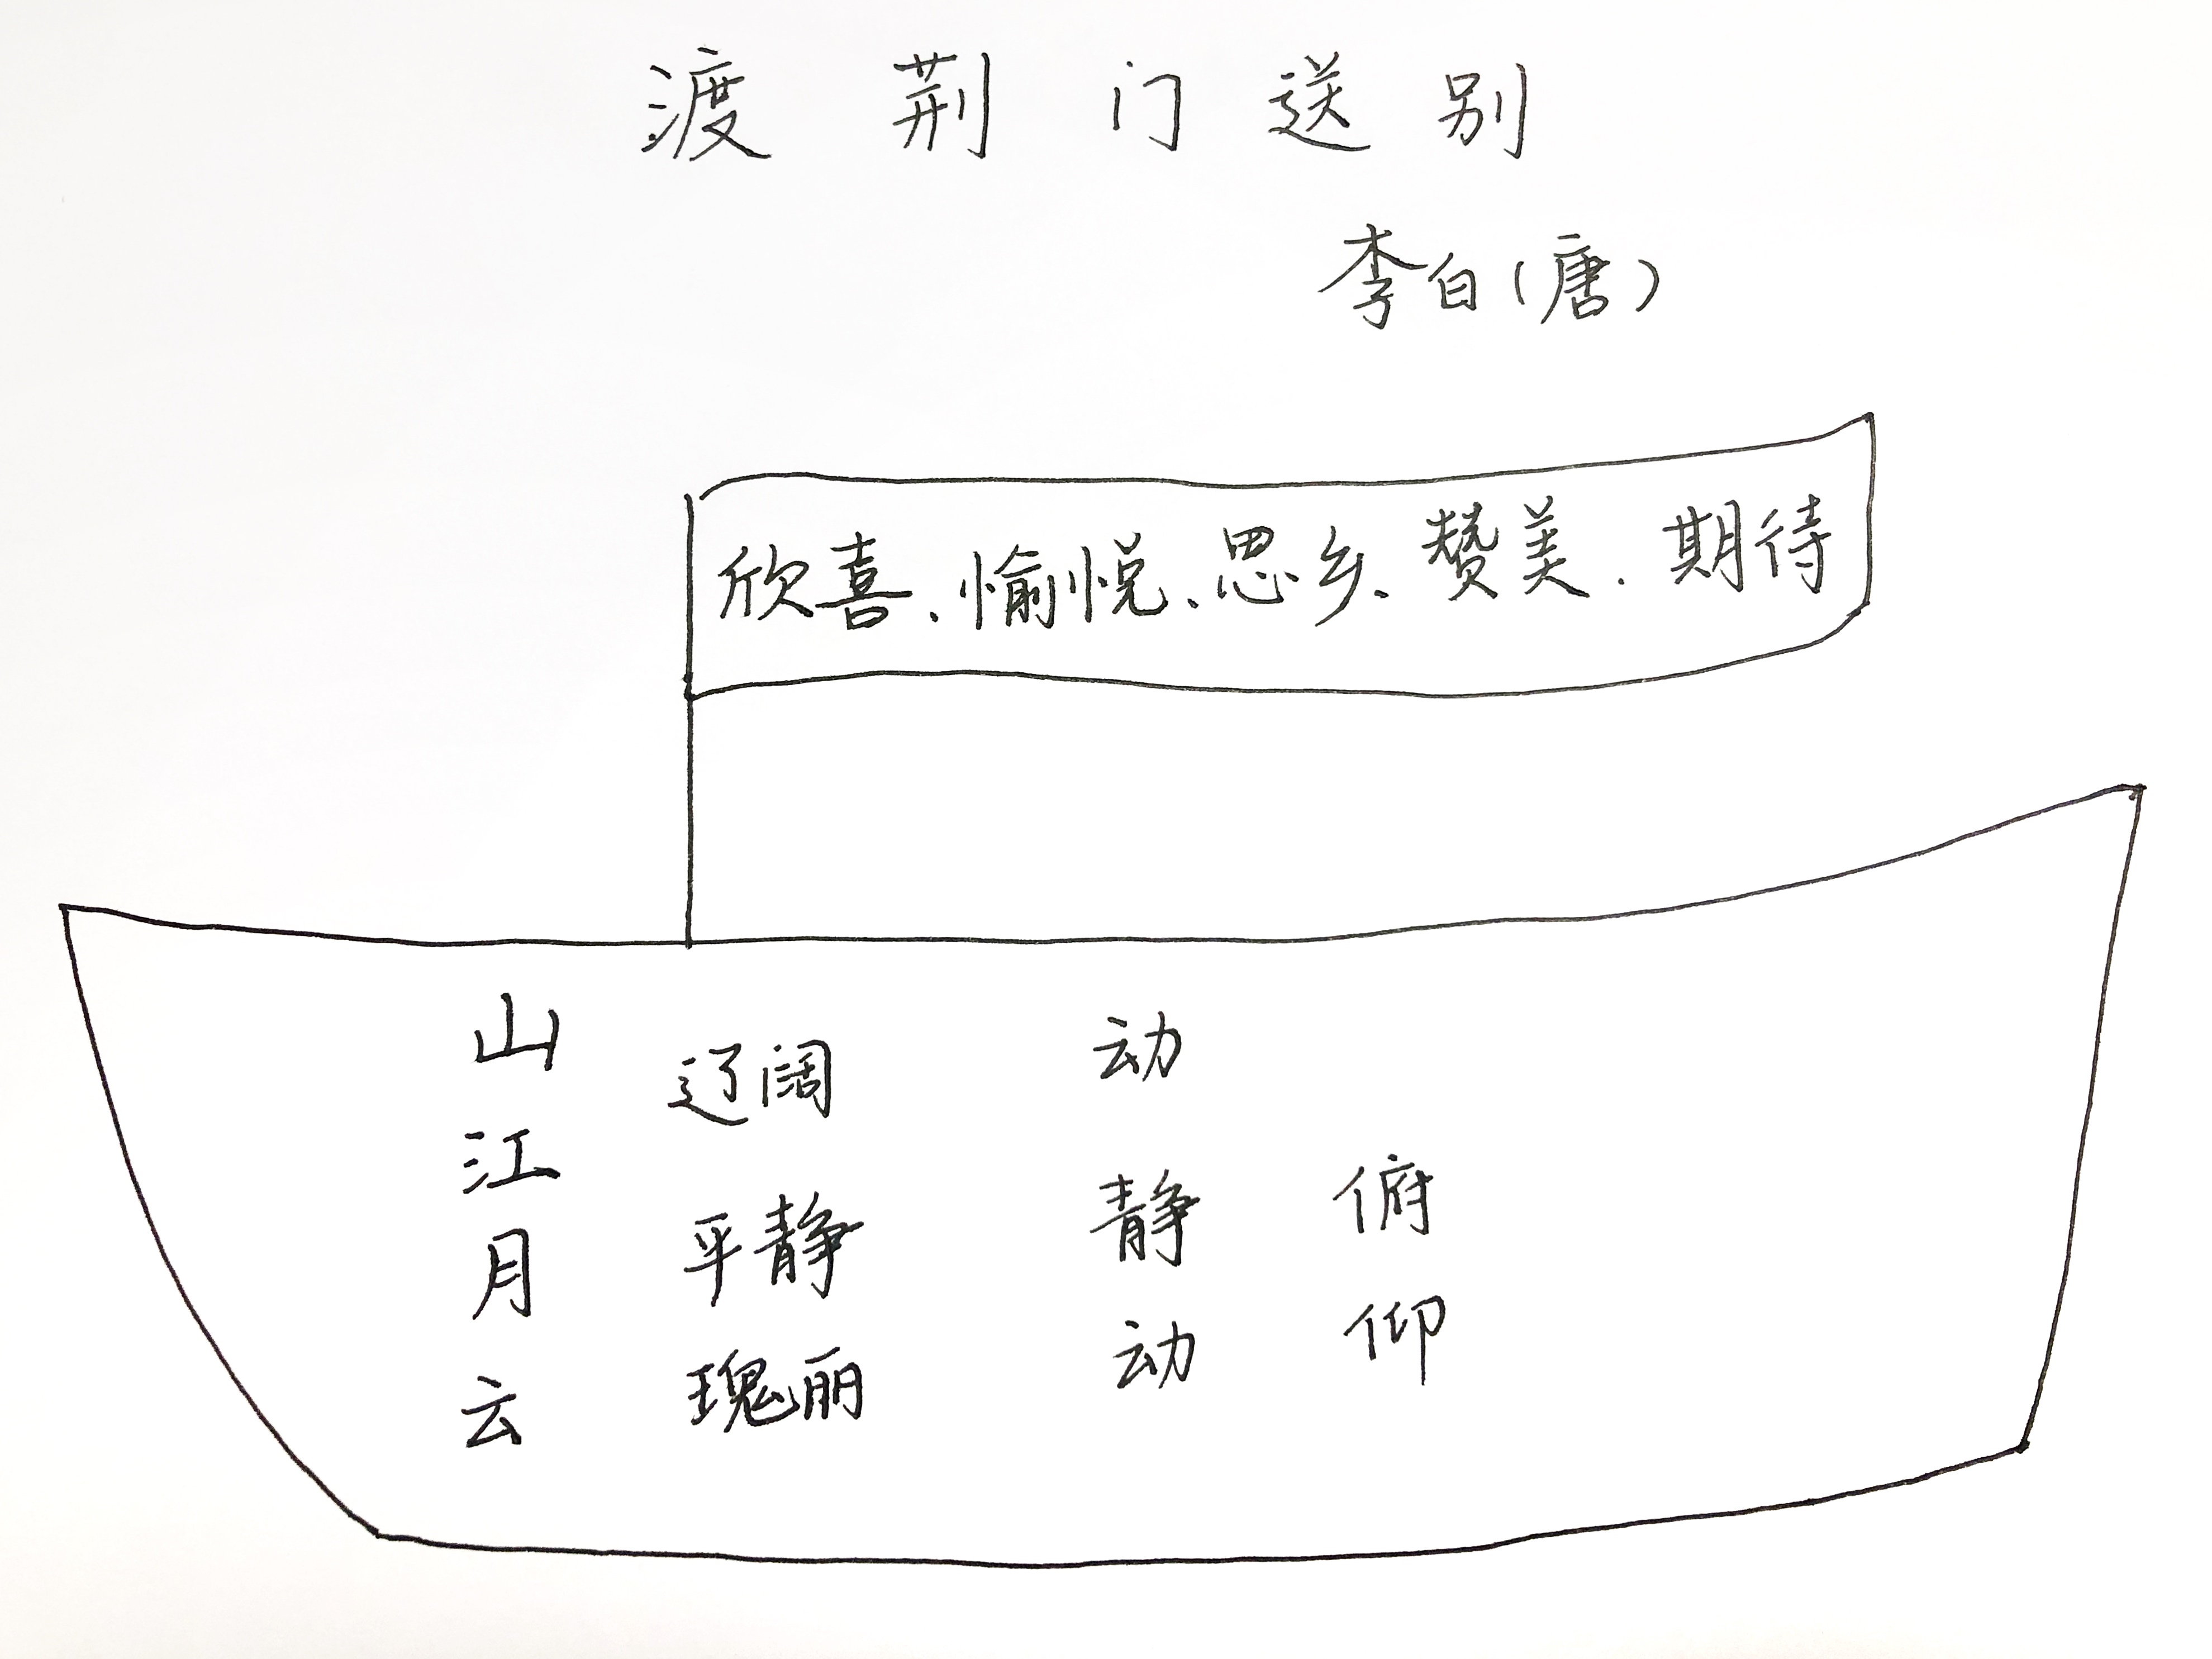 渡荆门送别
李白(唐)
欣喜、愉悦、思乡、赞美、期待
山 辽阔 动
江 静 俯
月 平静 动 仰
云 瑰丽